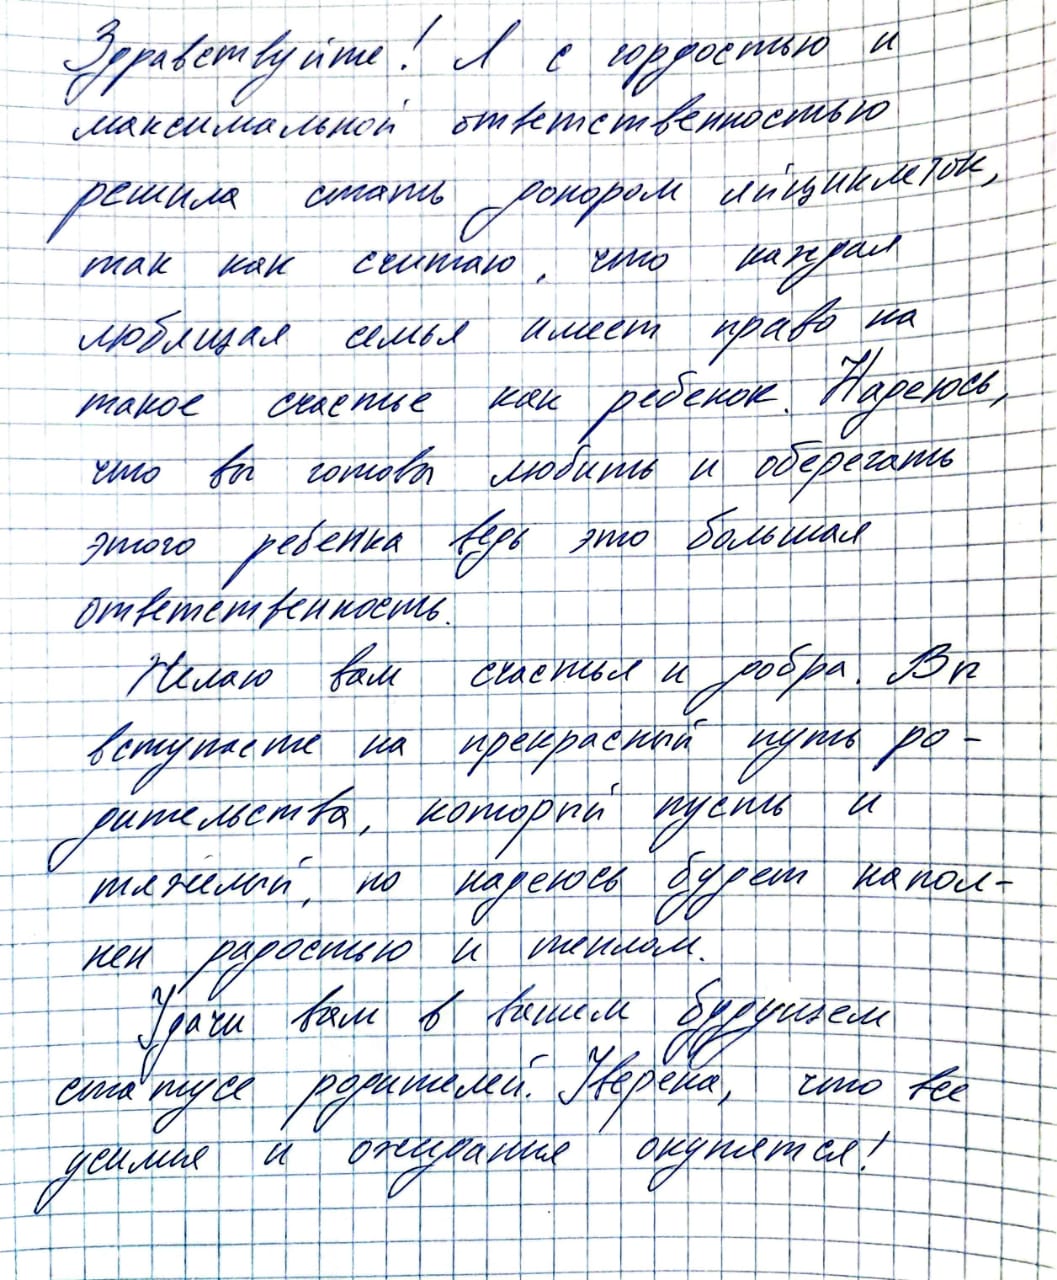 Здравствуйте! Я с гордостью и
максимальной ответственностью
решила стать донором яйцеклеток,
так как считаю, что каждая
любящая семья имеет право на
такое счастье как ребенок. Надеюсь,
что вы готовы любить и оберегать
этого ребенка ведь это большая
ответственность.
Желаю вам счастья и добра. Вы
вступаете на прекрасный путь ро-
дительства, который пусть и
тяжёлый, но надеюсь будет напол-
нен радостью и теплом.
Удачи вам в вашем будущем
статусе родителей. Уверена, что все
усилия и ожидания окупятся!